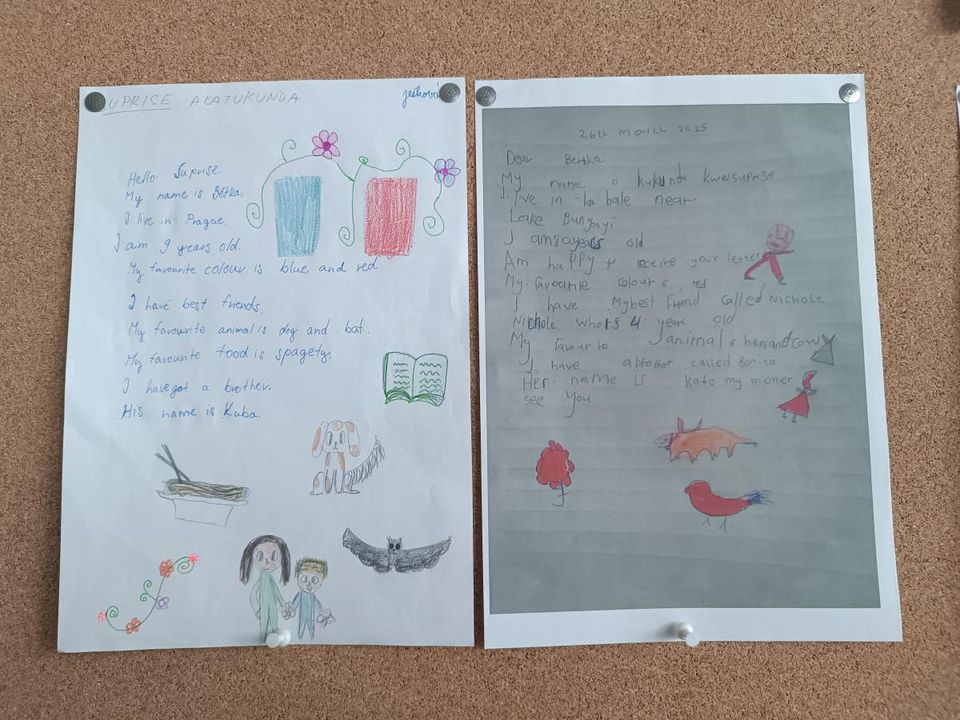 UPRISE AKATUKUNDA
Hello Suprise.
My name is Bětka.
I live in Prague.
I am 9 years old.
My favourite colour is blue and red.
I have best friends.
My favourite animal is dog and bat.
My favourite food is spagety.
I have got a brother.
His name is Kuba.
26th March 2025
Dear Bertka
My name is kukunda kwesuprise
I live in ka bale near
Lake Bunyonyi
I am years old
Am happy to receive your letter
My favourite colour is red
I have My best friend called Nichole
Nichole who is 4 years old
My favourite animal is hen and cow
I have a brother called
Her name is kato my mother
see you